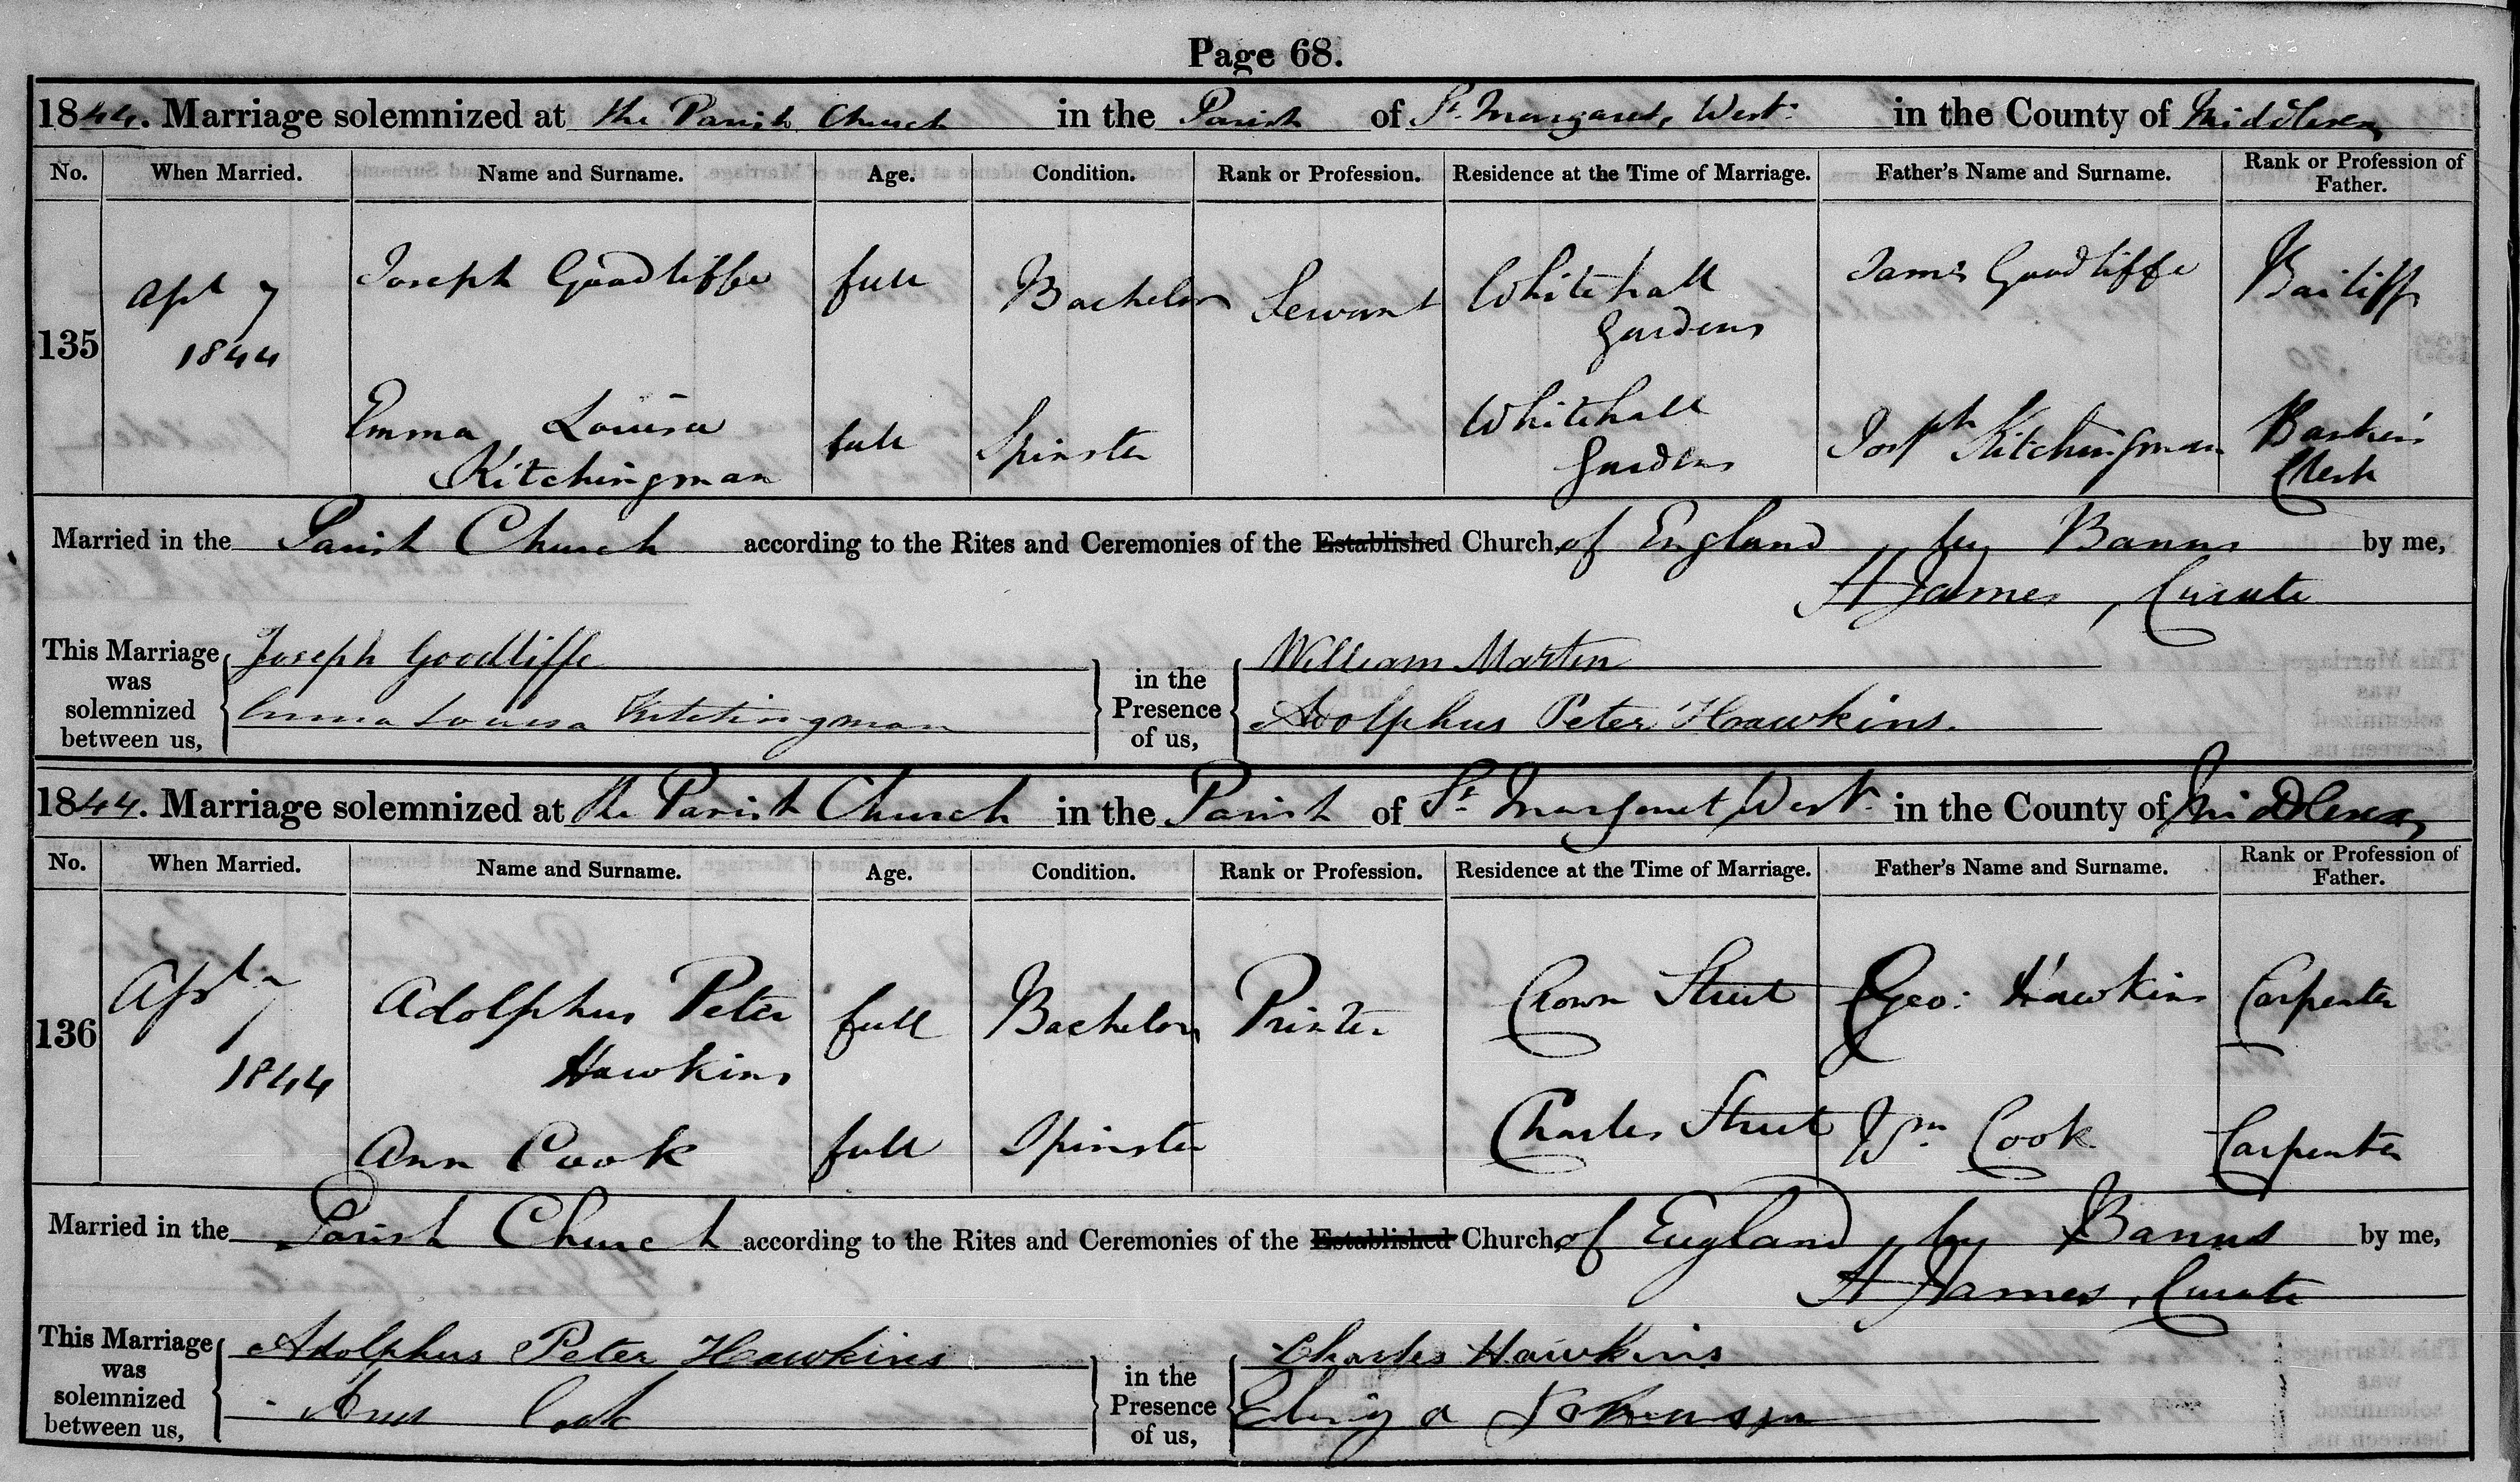 Page 68.
1844. Marriage solemnized at the Parish Church in the Parish of St. Margaret, West. in the County of Middlesex
No. When Married. Name and Surname. Age. Condition. Rank or Profession. Residence at the Time of Marriage. Father's Name and Surname. Rank or Profession of Father.
135 Apl 7 1844 Joseph Goodliffe full Bachelor Servant Whitehall Gardens James Goodliffe Bailiff
Emma Louisa Kitchingman full Spinster Whitehall Gardens Josph Kitchingman Banker's Clerk
Married in the Parish Church according to the Rites and Ceremonies of the Established Church, of England, by Banns by me,
H James, Curate
This Marriage was solemnized between us, Joseph Goodliffe in the Presence of us, William Martin
Emma Louisa Kitchingman Adolphus Peter Hawkins.
1844. Marriage solemnized at the Parish Church in the Parish of St. Margaret West. in the County of Middlesex
No. When Married. Name and Surname. Age. Condition. Rank or Profession. Residence at the Time of Marriage. Father's Name and Surname. Rank or Profession of Father.
136 Apl 7 1844 Adolphus Peter Hawkins full Bachelor Printer Crown Street Geo: Hawkins Carpenter
Ann Cook full Spinster Charles Street Wm Cook Carpenter
Married in the Parish Church according to the Rites and Ceremonies of the Established Church, of England, by Banns by me,
H James, Curate
This Marriage was solemnized between us, Adolphus Peter Hawkins in the Presence of us, Charles Hawkins
Ann Cook